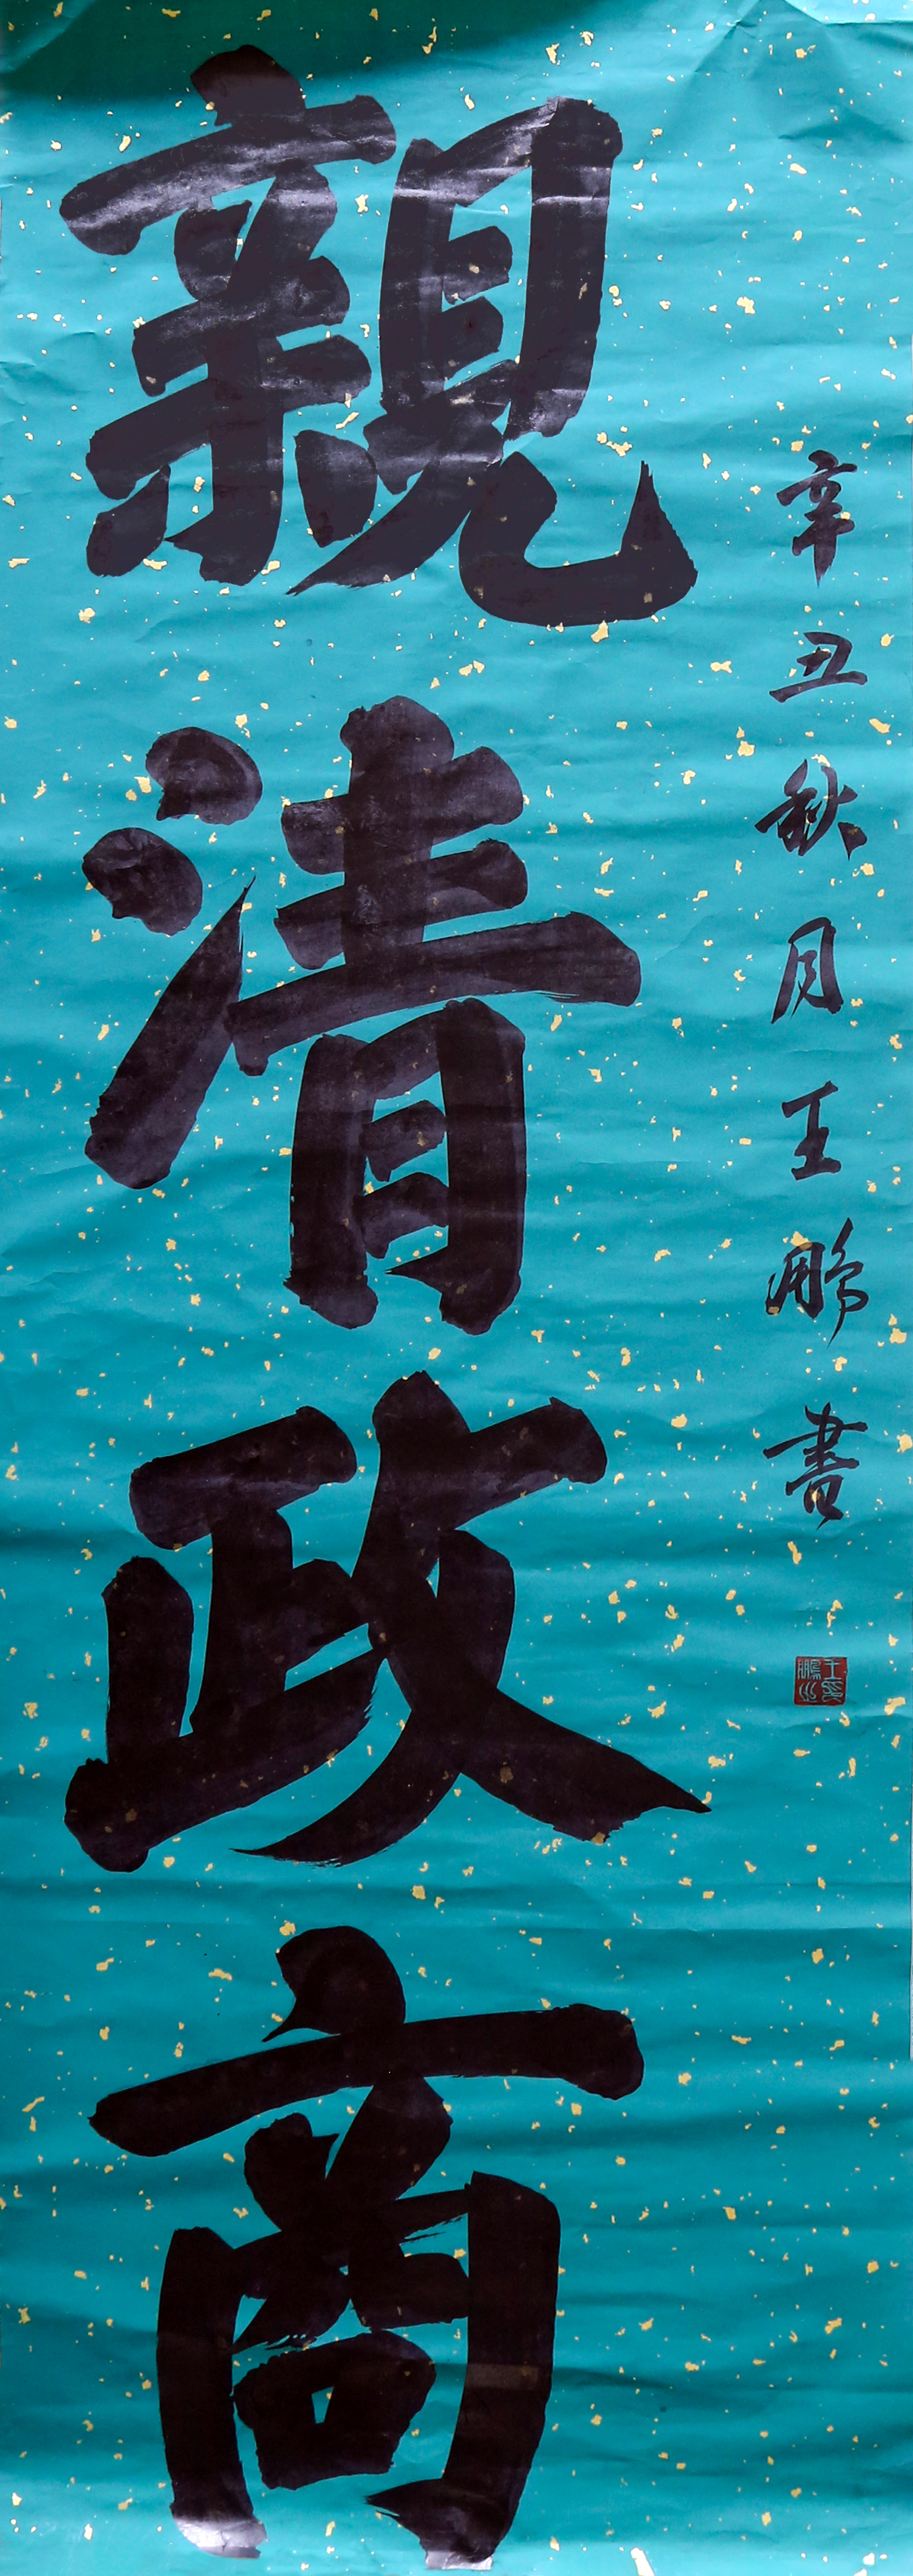 親清政商
辛丑秋月王鹏書